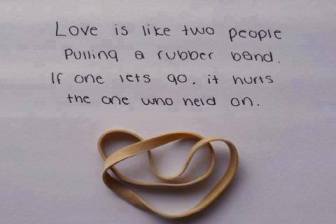 Love is like two people
Pulling a rubber band.
If one lets go, it hurts
the one who held on.